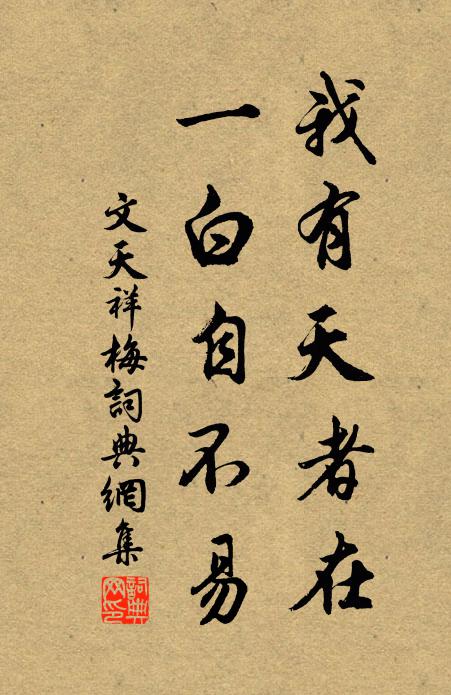 我有天者在
一白自不易
文天祥梅詞典網集
詞典
网印